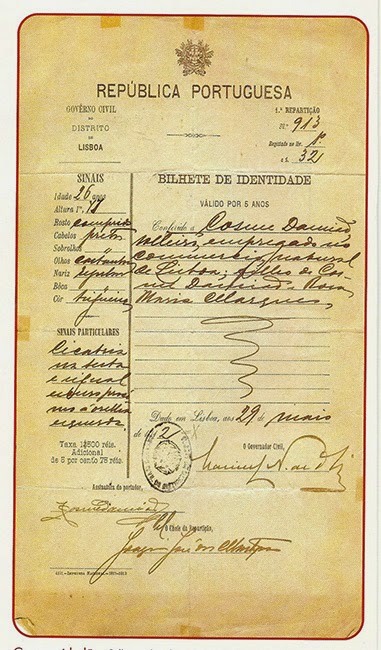 REPÚBLICA PORTUGUESA
GOVÊRNO CIVIL
DO
DISTRITO
DE
LISBOA
1.ª REPARTIÇÃO
N.º 913
Registado no liv. 1º
a fl. 321
SINAIS
Idade 26 anos
Altura 1m,71
Rosto comprido
Cabelos pretos
Sobrolhos "
Olhos castanhos
Nariz regular
Bôca "
Côr trigueira
SINAIS PARTICULARES
Cicatriz
na testa
e signal
escuro proxi
mo á orelha
esquerda.
Taxa 1$500 réis.
Adicional
de 5 por cento 75 réis.
BILHETE DE IDENTIDADE
VÁLIDO POR 5 ANOS
Conferido a Cosme Damião
solteiro, empregado no
commercio, natural
de Lisboa; filho de Cos-
me Damião e Rosa
Maria Marques.
Dado em Lisboa, aos 29 de maio
de 1912
O Governador Civil,
Assinatura do portador,
Cosme Damião
O Chefe da Repartição,